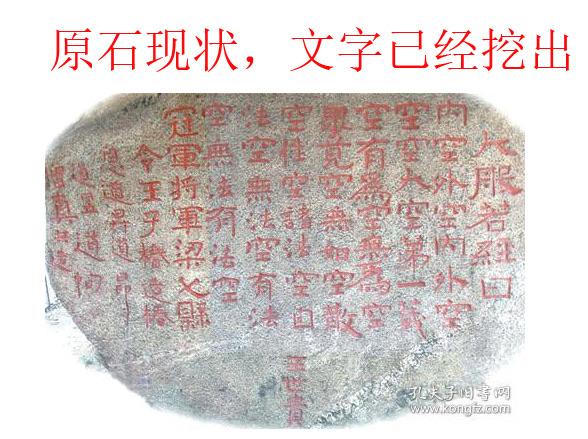 原石现状，文字已经挖出
大般若經曰
内空外空内外空
空空大空第一義
空有爲空無爲空
畢竟空無始空散
空性空諸法空自
法空無法空有法
空無法有法空
冠軍將軍梁父縣
令王子椿造椿
息道昇道昂
道昱道枸
僧真共造
王世貴
孔夫子旧书网
www.kongfz.com